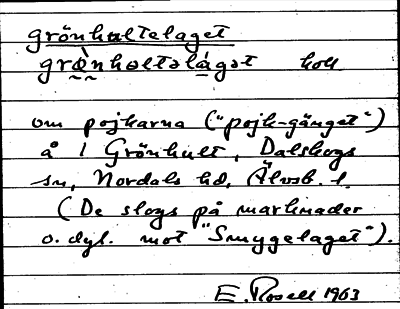 grönhultelaget
grö̀nhʉltəlágət koll
om pojkarna ("pojk-gänget")
å 1 Grönhult, Dalskogs
sn, Nordals hd, Älvsb. l.
(De slogs på marknader
o. dyl. mot "Smygelaget").
E. Rosell 1963